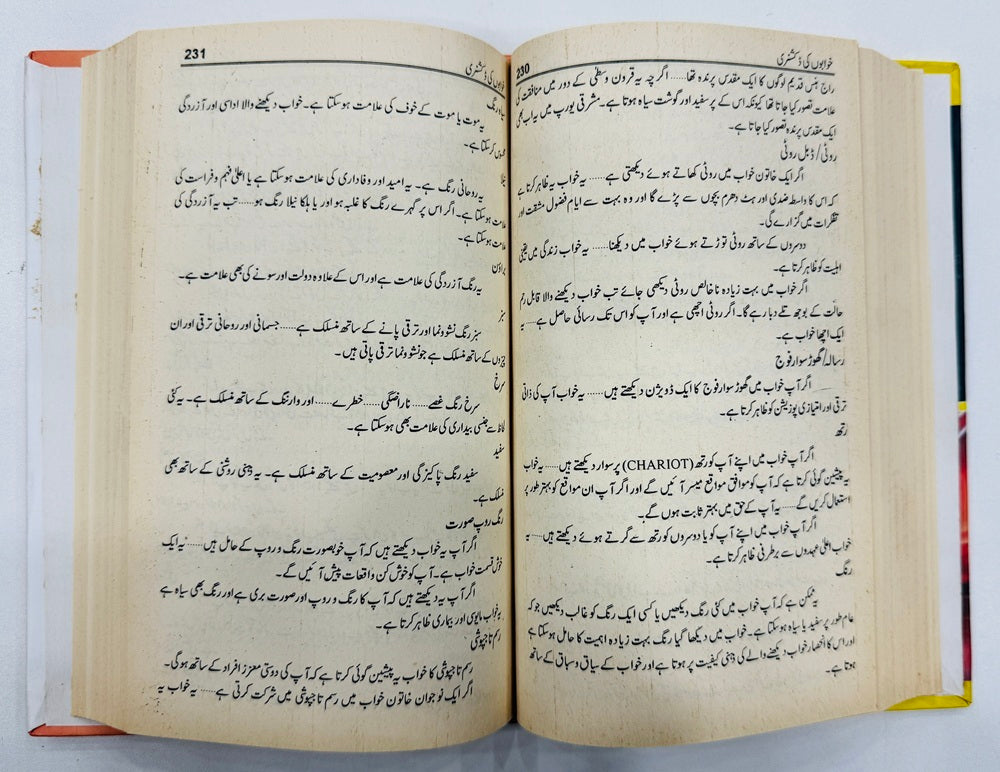 خوابوں کی ڈکشنری
230
راج ہنس قدیم لوگوں کا ایک مقدس پرندہ تھا...... اگرچہ یہ قرون وسطیٰ کے دور میں منافقت کی
علامت تصور کیا جاتا تھا کیونکہ اس کے پر سفید اور گوشت سیاہ ہوتا ہے۔ مشرقی یورپ میں یہ اب بھی
ایک مقدس پرندہ تصور کیا جاتا ہے۔
روٹی/ ڈبل روٹی
اگر ایک خاتون خواب میں روٹی کھاتے ہوئے دیکھتی ہے...... یہ خواب یہ ظاہر کرتا ہے
کہ اس کا واسطہ ضدی اور ہٹ دھرم بچوں سے پڑے گا اور وہ بہت سے ایام فضول مشقت اور
تفکرات میں گزارے گی۔
دوسروں کے ساتھ روٹی توڑتے ہوئے خواب میں دیکھنا...... یہ خواب زندگی میں یقینی
اہلیت کو ظاہر کرتا ہے۔
اگر خواب میں بہت زیادہ ناخالص روٹی دیکھی جائے تب خواب دیکھنے والا قابل رحم
حالت کے بوجھ تلے دبا رہے گا۔ اگر روٹی اچھی ہے اور آپ کو اس تک رسائی حاصل ہے...... یہ
ایک اچھا خواب ہے۔
رسالہ/ گھوڑ سوار فوج
اگر آپ خواب میں گھوڑ سوار فوج کا ایک ڈویژن دیکھتے ہیں...... یہ خواب آپ کی ذاتی
ترقی اور امتیازی پوزیشن کو ظاہر کرتا ہے۔
رتھ
اگر آپ خواب میں اپنے آپ کو رتھ (CHARIOT) پر سوار دیکھتے ہیں...... یہ خواب
یہ پیشین گوئی کرتا ہے کہ آپ کو موافق مواقع میسر آئیں گے اور اگر آپ ان مواقع کو بہتر طور پر
استعمال کریں گے...... یہ آپ کے حق میں بہتر ثابت ہوں گے۔
اگر آپ خواب میں اپنے آپ کو یا دوسروں کو رتھ سے گرتے ہوئے دیکھتے ہیں...... یہ
خواب اعلیٰ عہدوں سے برطرفی ظاہر کرتا ہے۔
رنگ
یہ ممکن ہے کہ آپ خواب میں کئی رنگ دیکھیں یا کسی ایک رنگ کو غالب دیکھیں جو کہ
عام طور پر سفید یا سیاہ ہوسکتا ہے۔ خواب میں دیکھا گیا رنگ بہت زیادہ اہمیت کا حامل ہوسکتا ہے
اور اس کا انحصار خواب دیکھنے والے کی ذہنی کیفیت پر ہوتا ہے اور خواب کے سیاق و سباق کے ساتھ
ہوتا ہے۔
خوابوں کی ڈکشنری
231
رنگ
یہ موت یا موت کے خوف کی علامت ہوسکتا ہے۔ خواب دیکھنے والا اداسی اور آزردگی
محسوس کرسکتا ہے۔
نیلا
یہ روحانی رنگ ہے۔ یہ امید اور وفاداری کی علامت ہوسکتا ہے یا اعلیٰ فہم و فراست کی
علامت ہوسکتا ہے۔ اگر اس پر گہرے رنگ کا غلبہ ہو اور یا ہلکا نیلا رنگ ہو...... تب یہ آزردگی کی
علامت ہوسکتا ہے۔
براؤن
یہ رنگ آزردگی کی علامت ہے اور اس کے علاوہ دولت اور سونے کی بھی علامت ہے۔
سبز
سبز رنگ نشوونما اور ترقی پانے کے ساتھ منسلک ہے...... جسمانی اور روحانی ترقی اور ان
چیزوں کے ساتھ منسلک ہے جو نشوونما ترقی پاتی ہیں۔
سرخ
سرخ رنگ غصے...... ناراضگی...... خطرے...... اور وارننگ کے ساتھ منسلک ہے۔ یہ کئی
لحاظ سے جنسی بیداری کی علامت بھی ہوسکتا ہے۔
سفید
سفید رنگ پاکیزگی اور معصومیت کے ساتھ منسلک ہے۔ یہ ذہنی روشنی کے ساتھ بھی
منسلک ہے۔
رنگ روپ صورت
اگر آپ یہ خواب دیکھتے ہیں کہ آپ خوبصورت رنگ و روپ کے حامل ہیں...... یہ ایک
خوش قسمت خواب ہے۔ آپ کو خوش کن واقعات پیش آئیں گے۔
اگر آپ یہ دیکھتے ہیں کہ آپ کا رنگ و روپ اور صورت بری ہے اور رنگ بھی سیاہ ہے
یہ خواب مایوسی اور بیماری ظاہر کرتا ہے۔
رسم تاجپوشی
رسم تاجپوشی کا خواب یہ پیشین گوئی کرتا ہے کہ آپ کی دوستی معزز افراد کے ساتھ ہوگی۔
اگر ایک نوجوان خاتون خواب میں رسم تاجپوشی میں شرکت کرتی ہے...... یہ خواب یہ